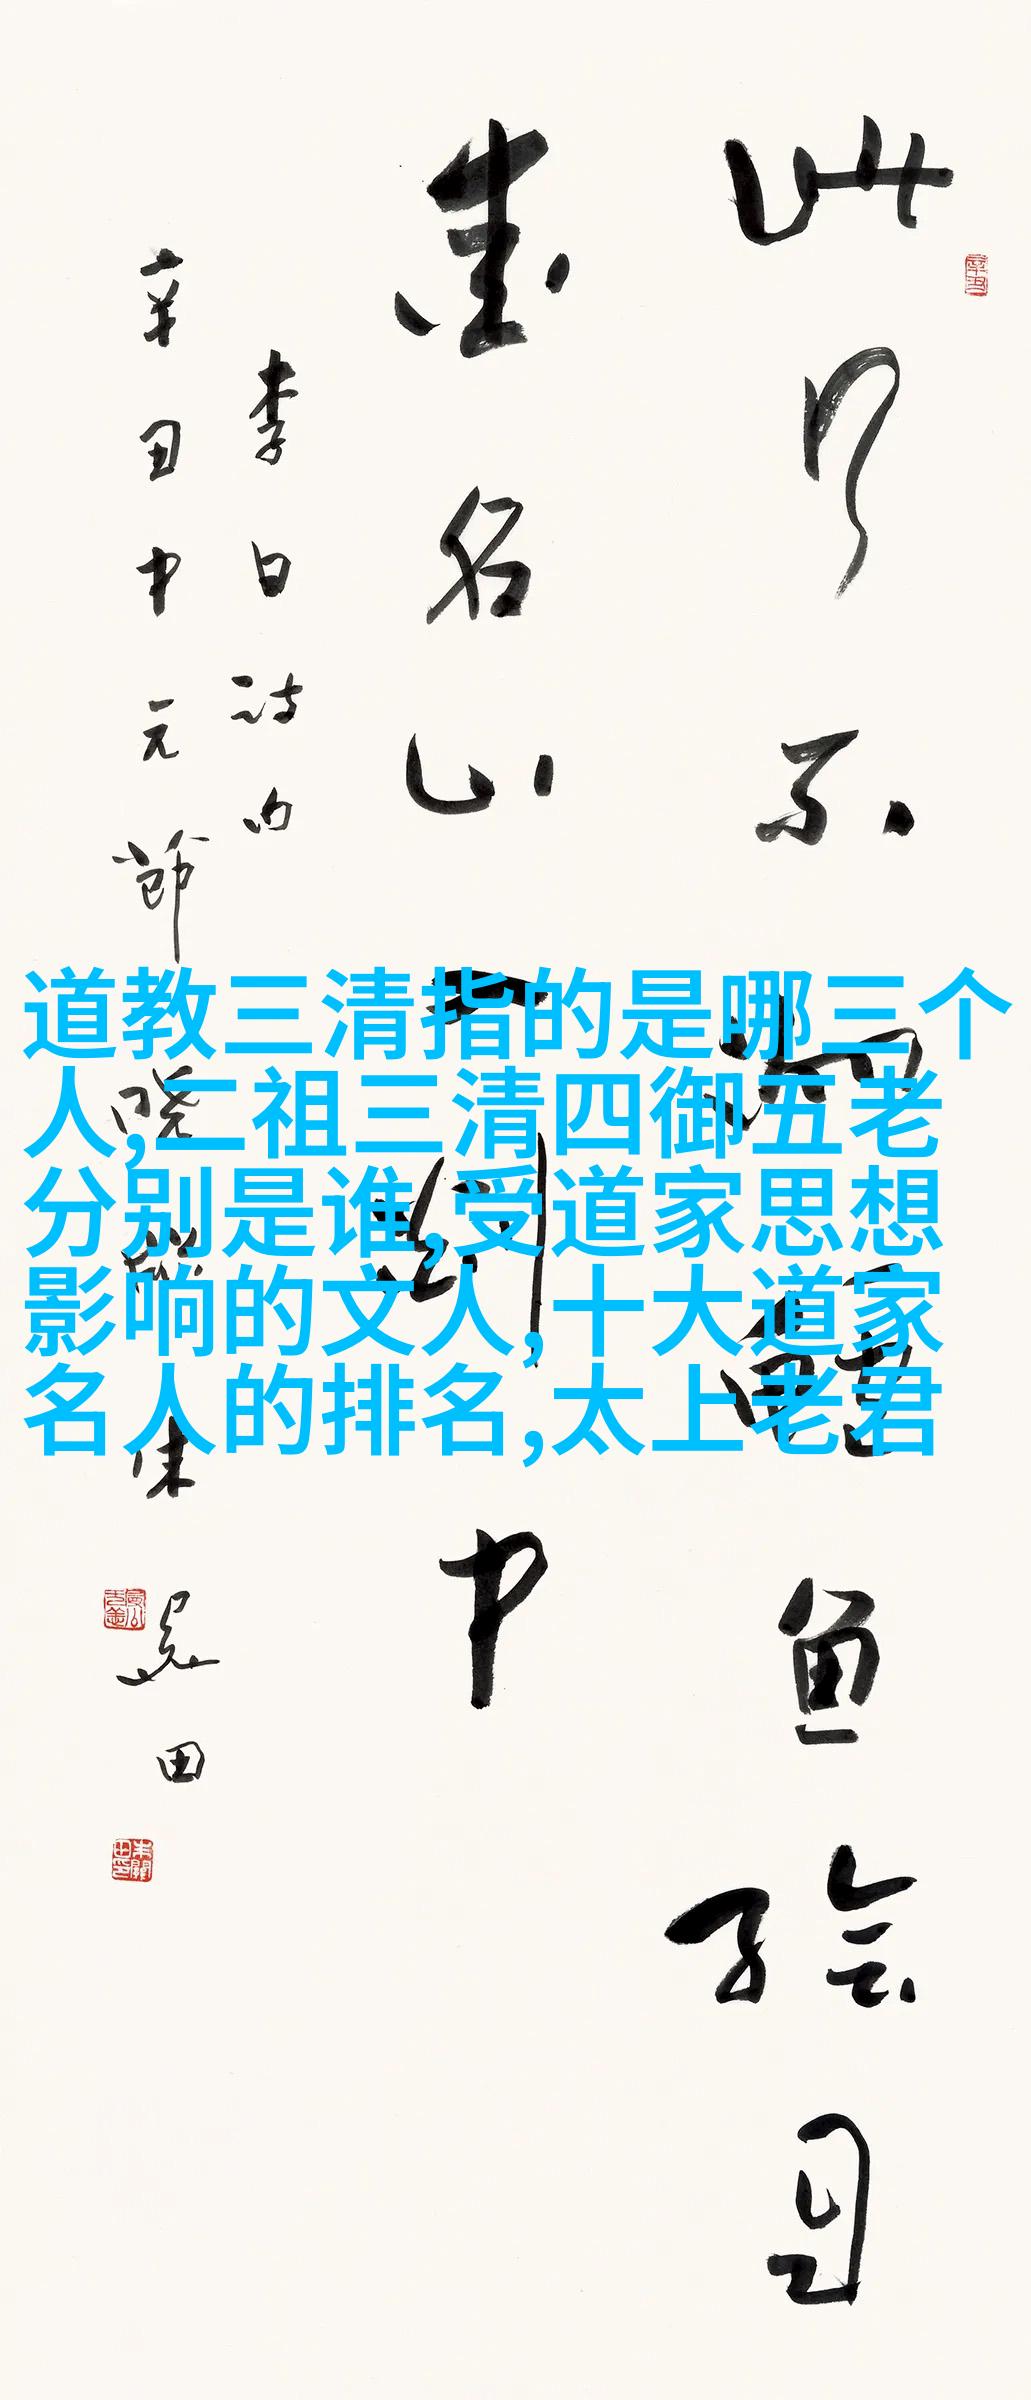 道教三清指的是哪三个
人,二祖三清四御五老
分别是谁,受道家思想
影响的文人,十大道家
名人的排名,太上老君
此行不為鱸魚鱠自
愛名山入剡中
李白詩句
辛丑中元節 朱關田